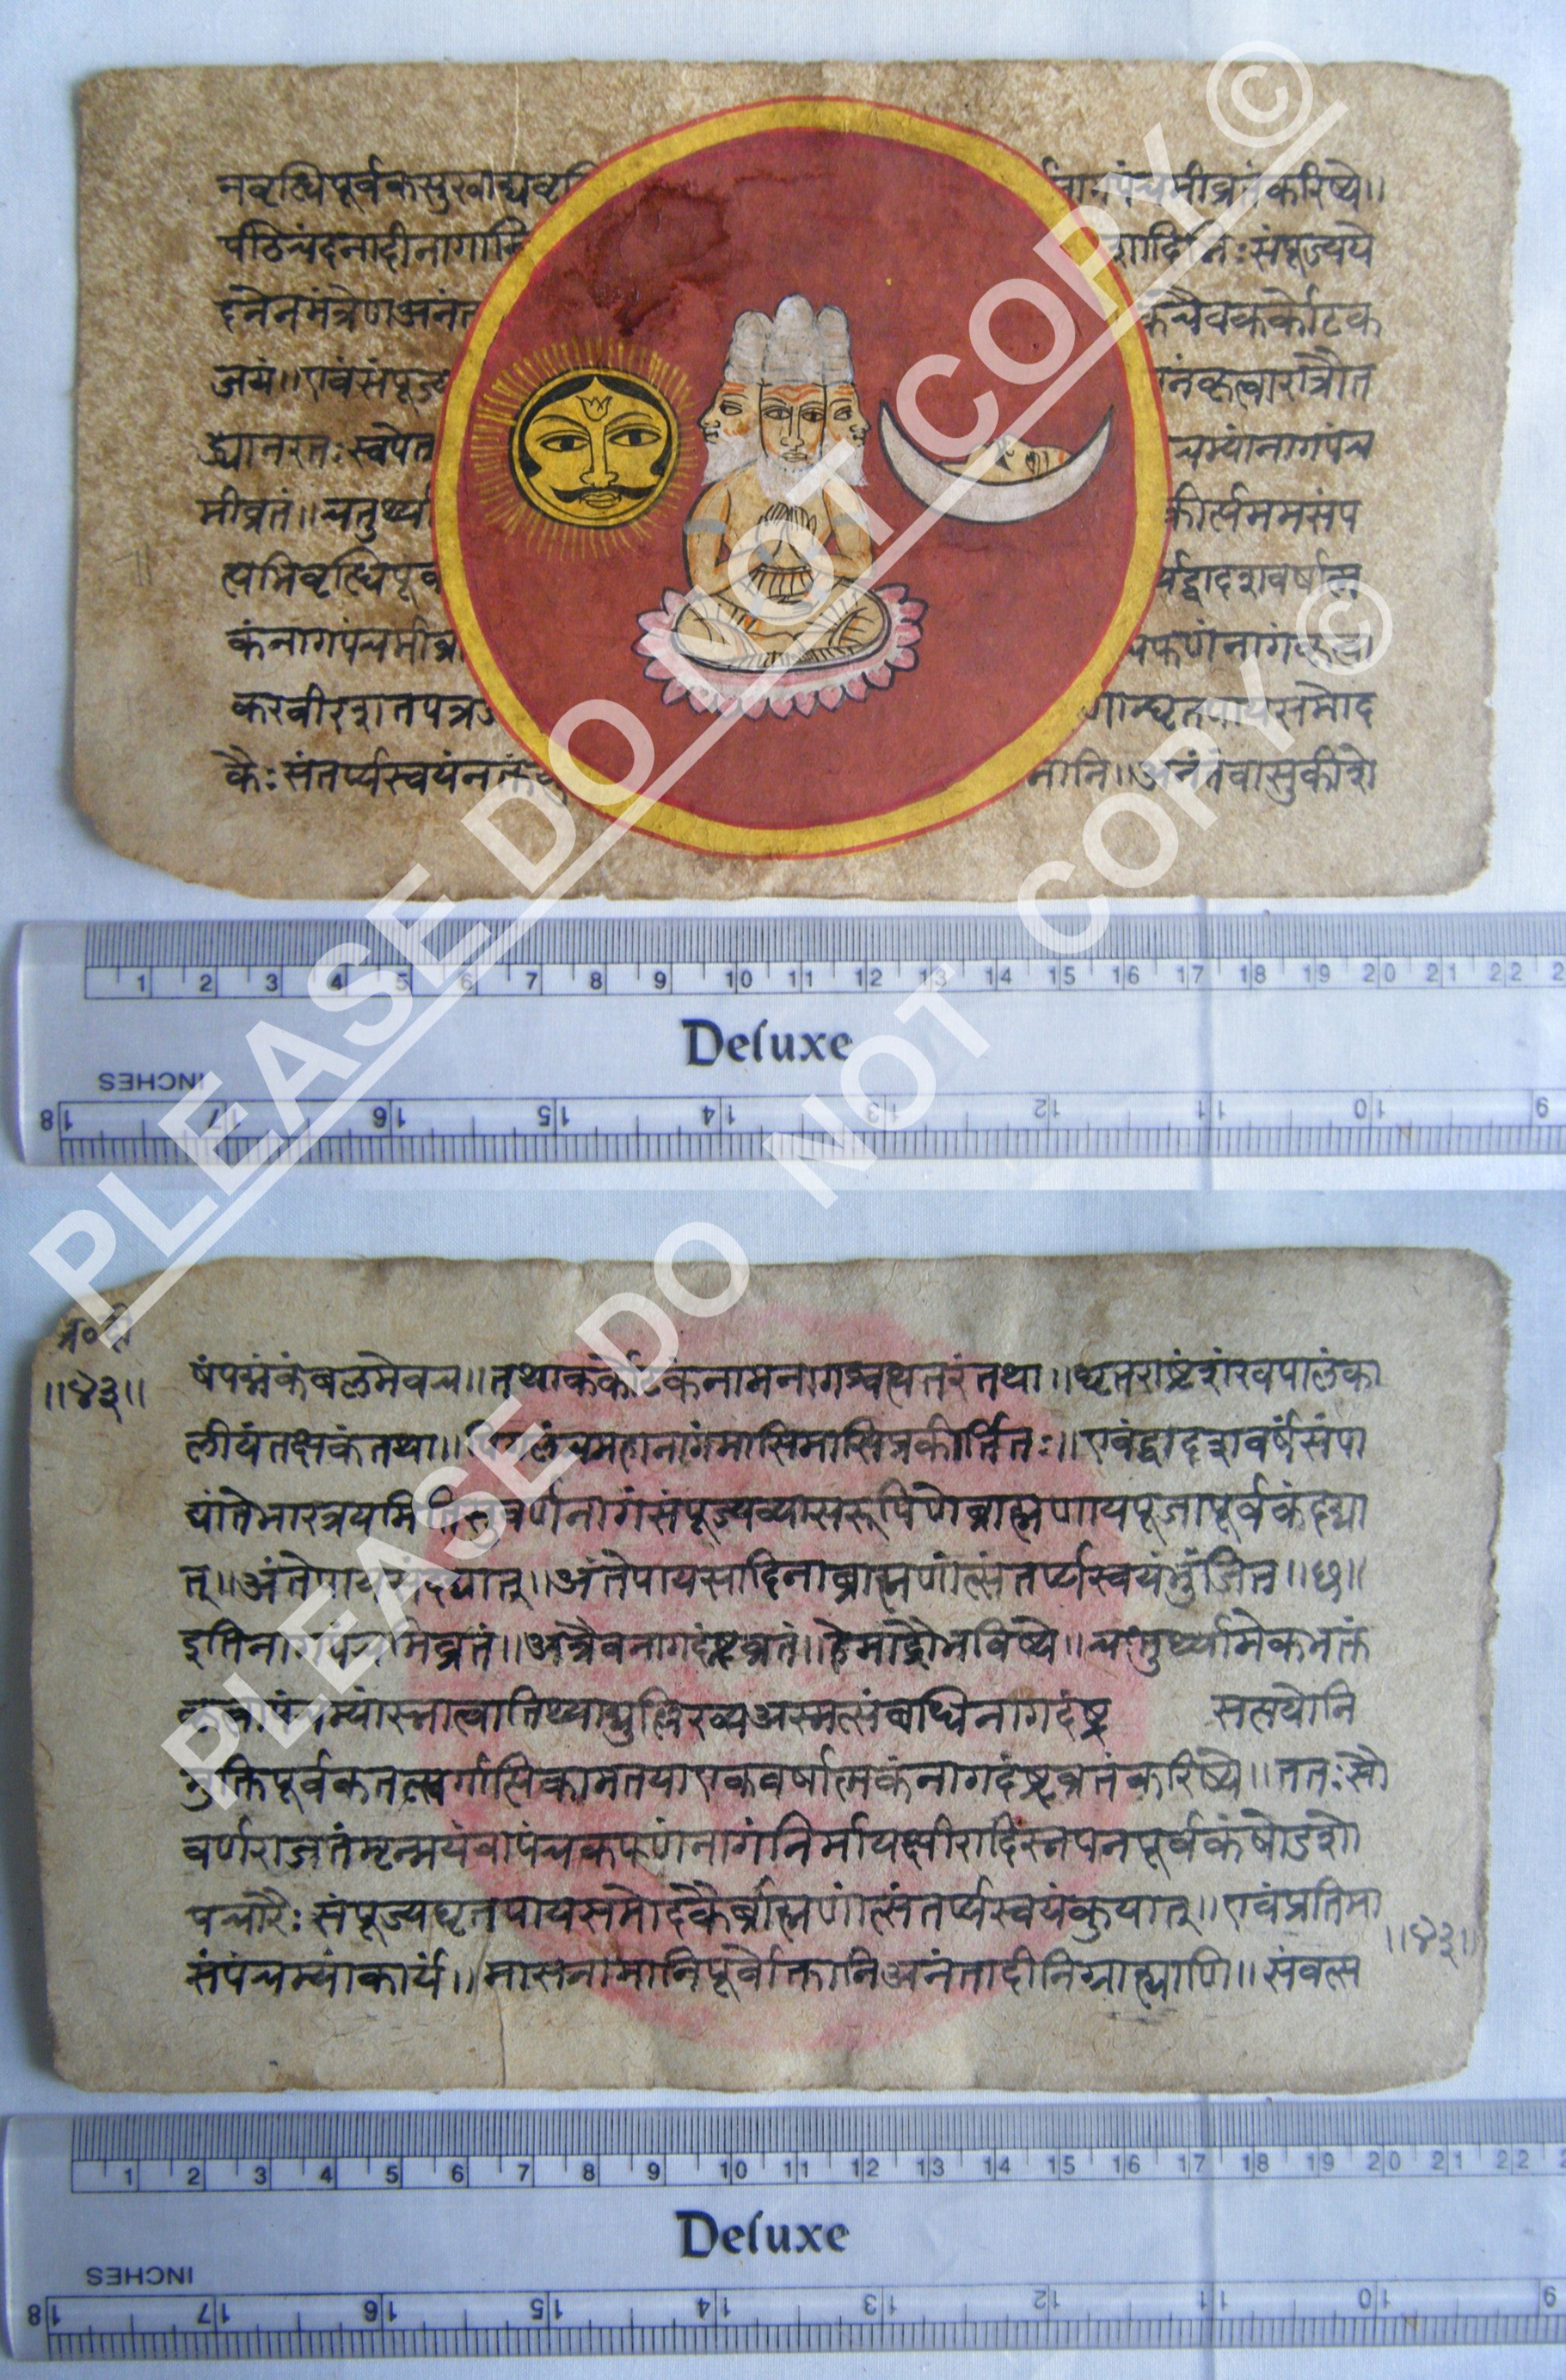 नवृत्धिपूर्वकसुखाद्यवृ नागपंचमीव्रतंकरिष्ये॥
पीठेचंदनादीनागा दिभिःसंपूज्यये
दनेनमंत्रेणअनंत कंचैवकर्कोटक
जयं॥एवंसंपूज्य नंकृत्वारात्रौत
द्ध्यानरतःस्वपेत चम्यांनागपंच
मीव्रतं॥चतुर्थ्यां कीर्त्यममसंप
त्यभिवृत्धिपूर्व द्वादशवर्षात्म
कंनागपंचमीव्र चफणंनागंकृत्वा
करवीरशतपत्र णान्घृतपायसमोद
कैः संतर्प्यस्वयंनक्तं मानि॥अनंतंवासुकींशे
PLEASE DO NOT COPY ©
1 2 3 4 5 6 7 8 9 10 11 12 13 14 15 16 17 18 19 20 21 22 2
Deluxe
INCHES
18 17 16 15 14 13 12 11 10 9
PLEASE DO NOT COPY ©
॥४३॥
षंपद्मंकंबलमेवच॥तथाकर्कोटकंनामनागश्वत्थतरंतथा॥धृतराष्ट्रंशंखपालंका
लीयंतक्षकंतथा॥पिंगलंचमहानागंमासिमासिप्रकीर्तितः॥एवंद्वादशवर्षसंपा
द्यांतेभारत्रयमितिसुवर्णनागंसंपूज्यव्यासरूपिणेब्राह्मणायपूजापूर्वकंदद्या
त्॥अंतेपायसंदद्यात्॥अंतेपायसादिनाब्राह्मणांत्संतर्प्यस्वयंभुंजित॥छ॥
इतिनागपंचमिव्रतं॥अत्रैवनागदंष्ट्रव्रतं॥हेमाद्रौभविष्ये॥चतुर्थ्यामेकभक्तं
कृत्वापंचम्यांस्नात्वातिथ्याद्युल्लिख्यअस्मत्संबधिनागदंष्ट्र सत्सयोनि
मुक्तिपूर्वकतत्स्वर्गाप्तिकामतयाएकवर्षात्मकंनागदंष्ट्रव्रतंकरिष्ये॥ततःसौ
वर्णराजतंमृन्मयंवापंचकफणंनागंनिर्मायक्षीरादिस्नपनपूर्वकंषोडशो
पचारैः संपूज्यघृतपायसमोदकैर्ब्राह्मणांत्संतर्प्यस्वयंकुयात्॥एवंप्रतिमा
संपंचम्यांकार्यं॥मासनामानिपूर्वोक्तानिअनंतादीनिग्राह्याणि॥संवत्स
॥४३॥
1 2 3 4 5 6 7 8 9 10 11 12 13 14 15 16 17 18 19 20 21 22
Deluxe
INCHES
18 17 16 15 14 13 12 11 10 9